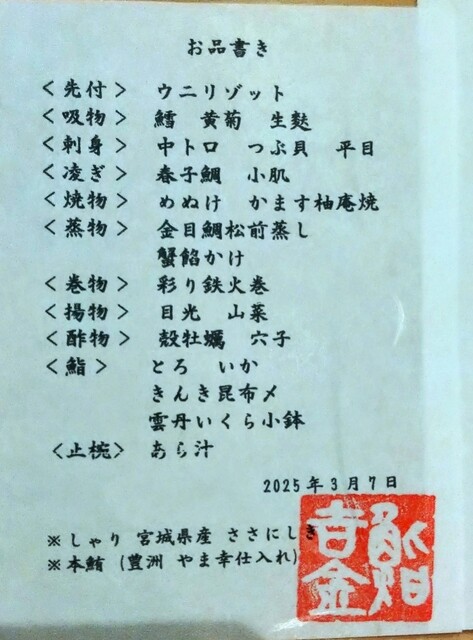 お品書き
<先付> ウニリゾット
<吸物> 鱈 黄菊 生麩
<刺身> 中トロ つぶ貝 平目
<凌ぎ> 春子鯛 小肌
<焼物> めぬけ かます柚庵焼
<蒸物> 金目鯛松前蒸し
蟹餡かけ
<巻物> 彩り鉄火巻
<揚物> 目光 山菜
<酢物> 殻牡蠣 穴子
<鮨> とろ いか
きんき昆布〆
雲丹いくら小鉢
<止椀> あら汁
2025年3月7日
※しゃり 宮城県産 ささにしき
※本鮪 (豊洲 やま幸仕入れ)